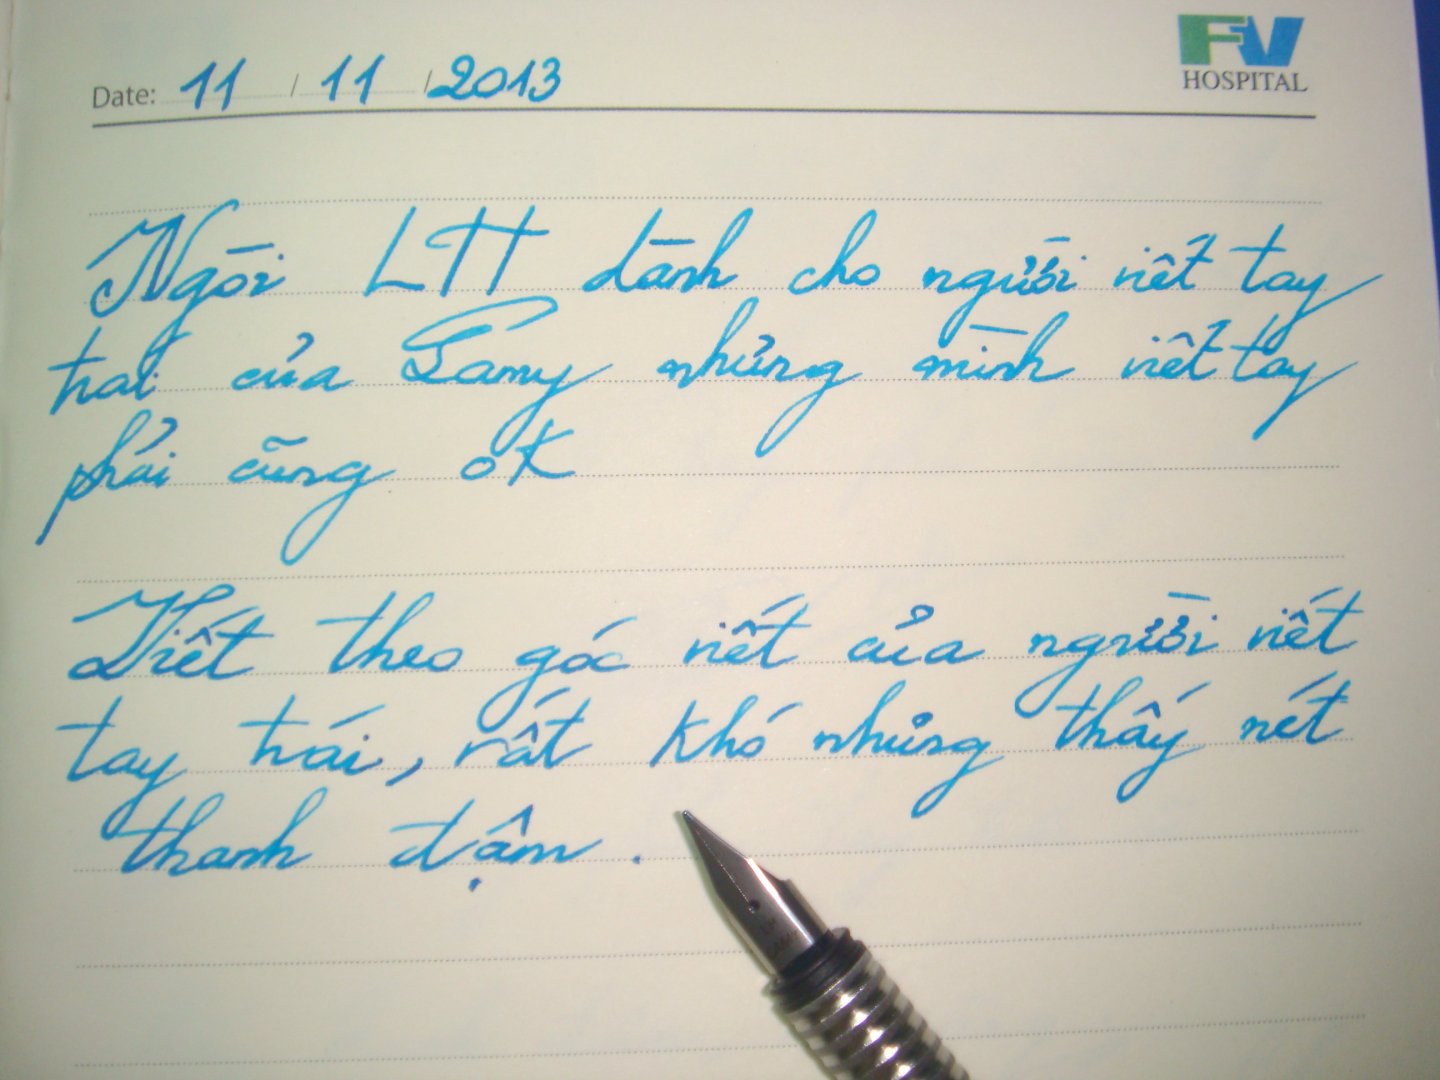 FV
HOSPITAL
Date: 11 / 11 / 2013
Ngòi LTT dành cho người viết tay
trái của Lamy nhưng mình viết tay
phải cũng ok
Viết theo góc viết của người viết
tay trái, rất khó nhưng thấy nét
thanh đậm.